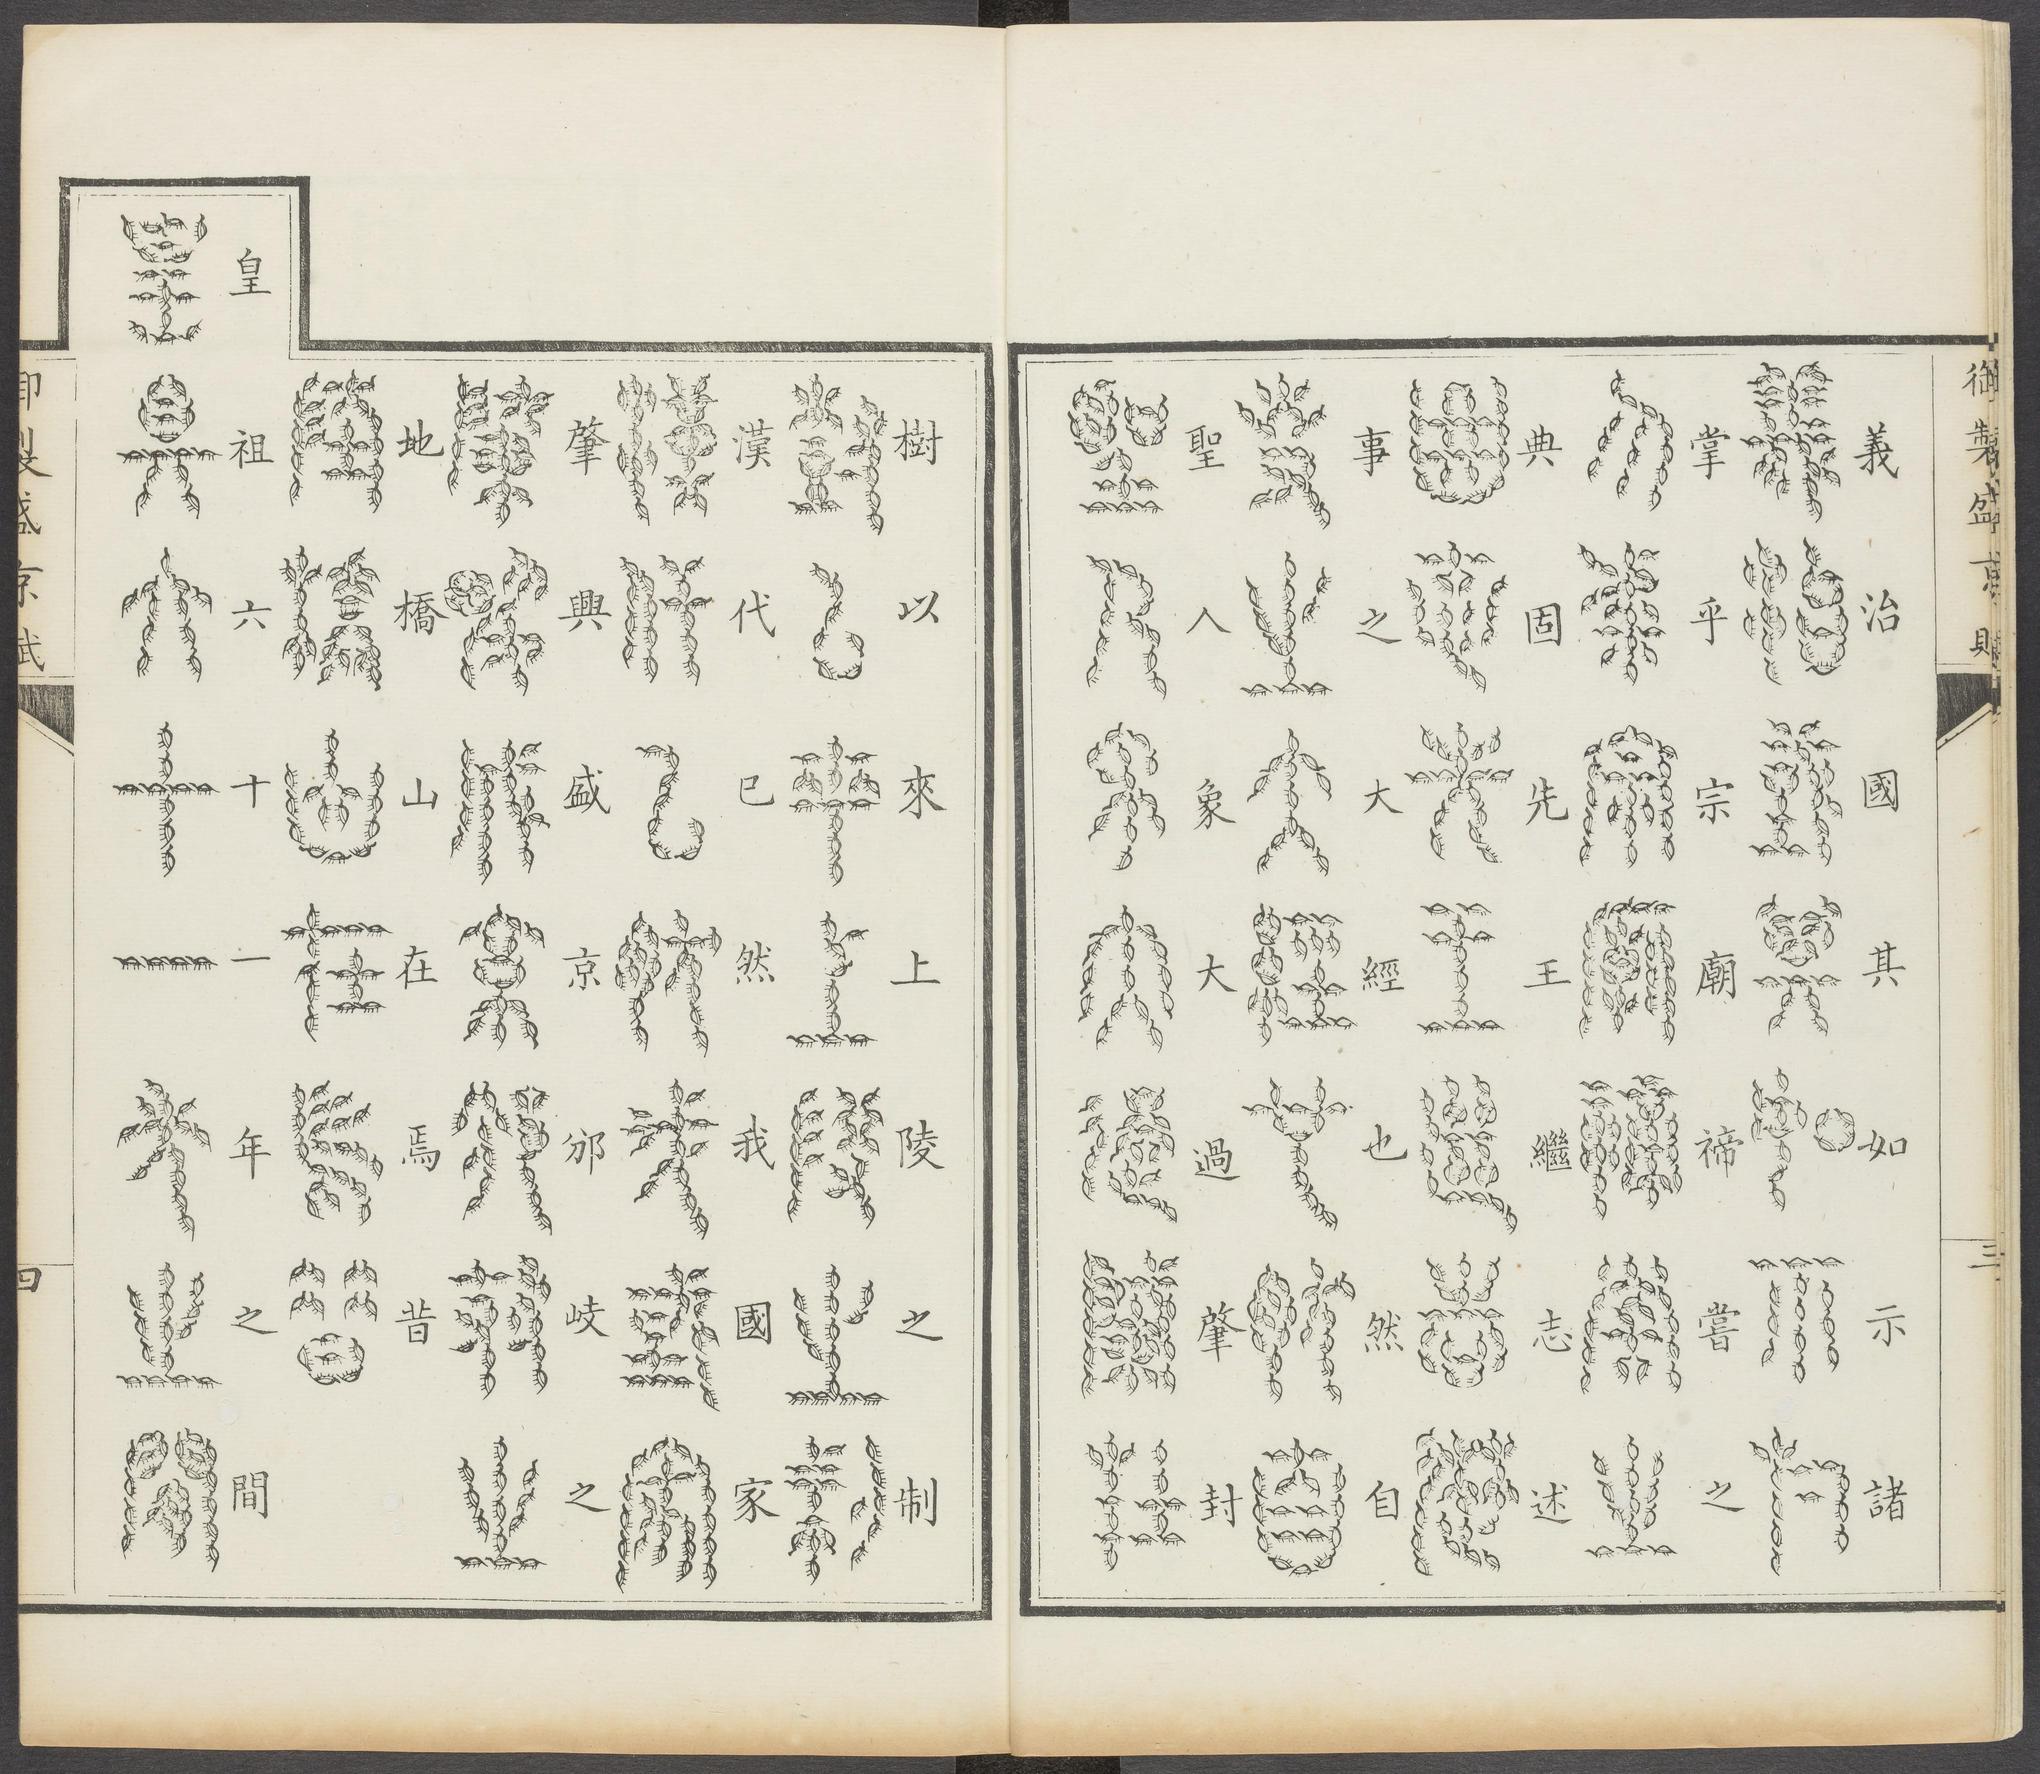 御製盛京賦 三
義治國其如示諸
掌乎宗廟禘嘗之
典固先王繼志述
事之大經也然自
聖人象大過肇封
樹以來上陵之制
漢代已然我國家
肇興盛京邠岐之
地橋山在焉昔
皇祖六十一年之間
御製盛京賦 四